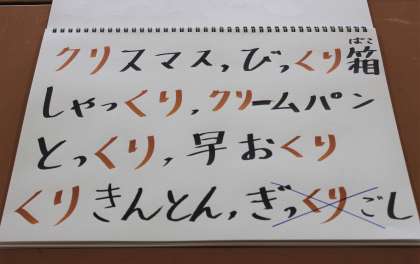 クリスマス，びっくり箱
しゃっくり，クリームパン
とっくり，早おくり
くりきんとん，ぎっくりごし